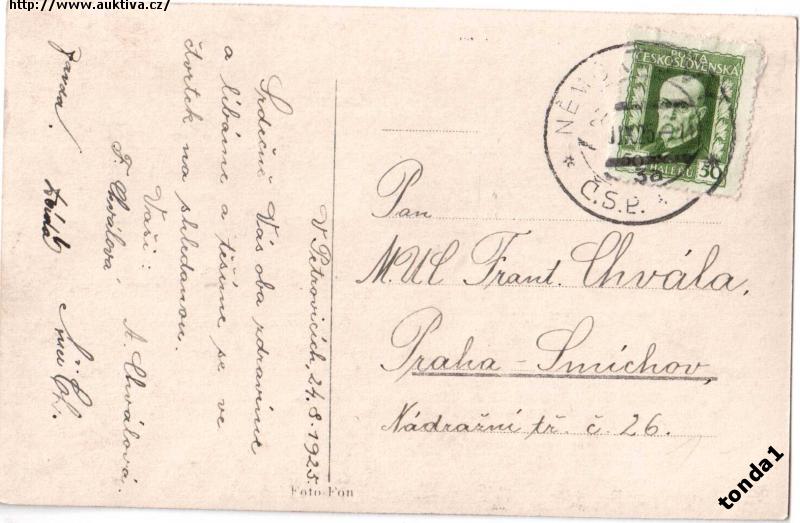 http://www.auktiva.cz/
V Petrovicích, 24.8.1925.
Srdečně Vás oba zdravíme
a líbáme a těšíme se ve
čtvrtek na shledanou.
Vaši:
F. Chválová A. Chválová.
Jarda.
POŠTA
ČESKOSLOVENSKÁ
50 HALÉŘŮ 50
Č.S.P.
Pan
M.U.C. Frant. Chvála,
Praha-Smíchov,
Nádražní tř. č. 26.
Foto-Fon
tonda1